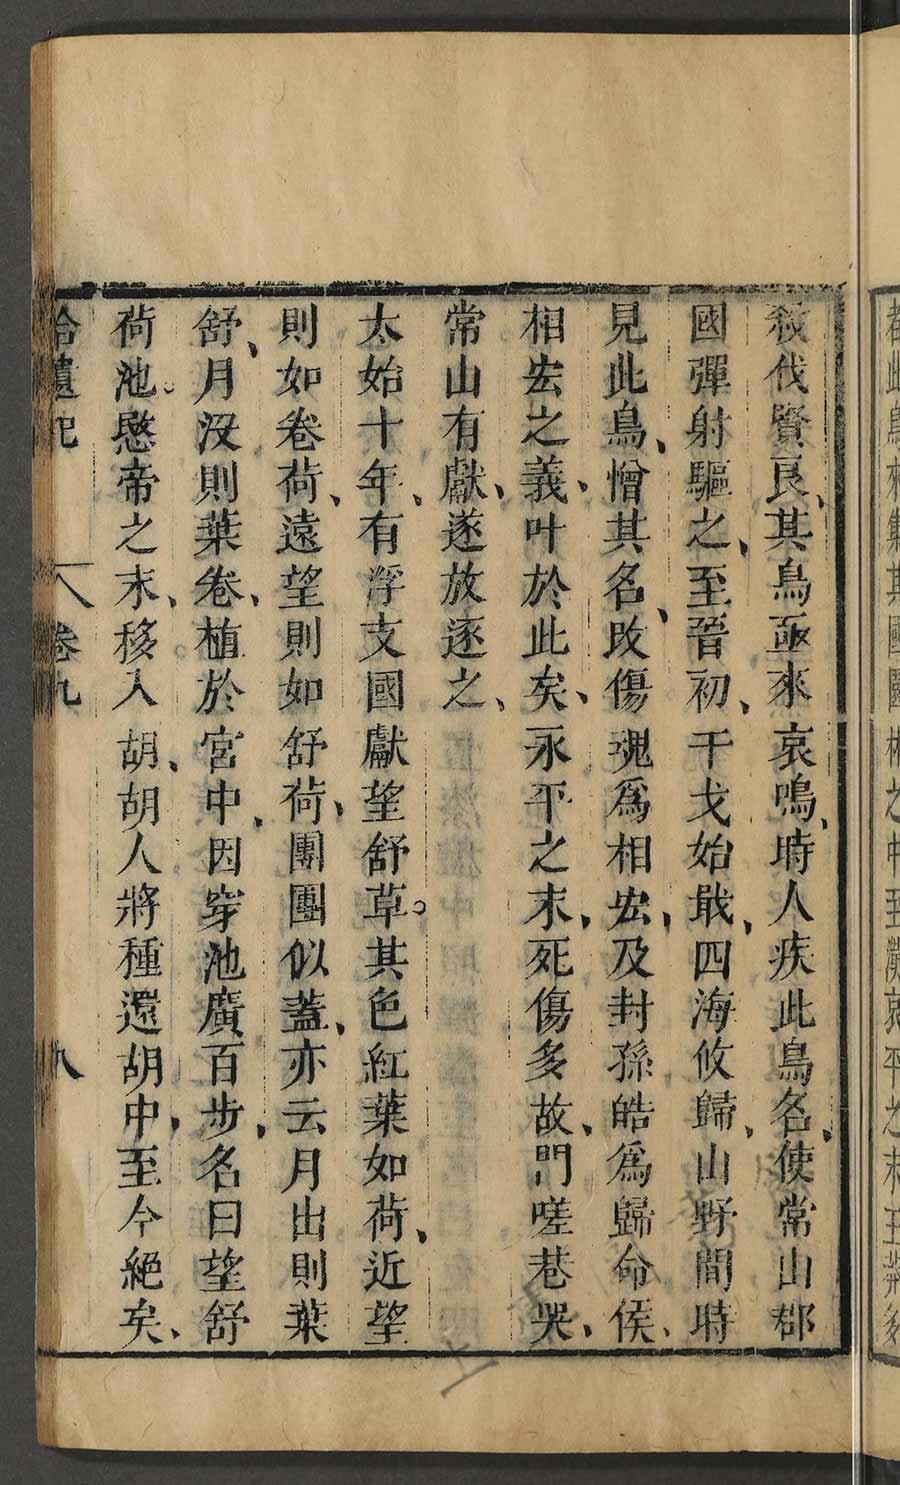 殺伐賢良、其鳥亟來哀鳴、時人疾此鳥名、使常山郡
國彈射驅之、至晉初、干戈始戢、四海攸歸、山野間時
見此鳥、憎其名、改傷魂爲相宏、及封孫皓爲歸命侯、
相宏之義、叶於此矣、永平之末、死傷多故、門嗟巷哭、
常山有獻、遂放逐之、
太始十年、有浮支國獻望舒草。其色紅葉如荷、近望
則如卷荷、遠望則如舒荷、團團似蓋、亦云月出則葉
舒、月没則葉卷、植於宮中、因穿池廣百步、名曰望舒
荷池。愍帝之末、移入胡、胡人將種還胡中、至今絕矣、
拾遺記 卷九 九